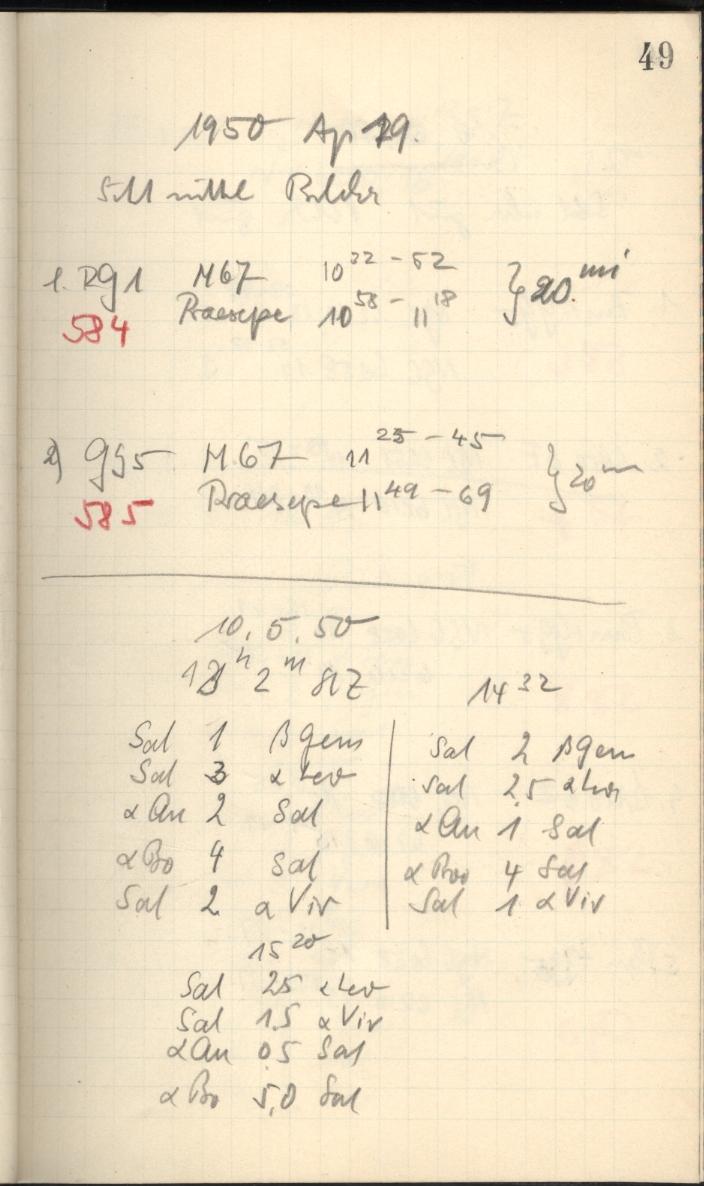 49
1950 Ap 19.
Still mittl Bilder
1. RG1 M67 10 22 - 52
584 Praesepe 10 58 - 11 18 } 20 mi
2) GG5 M67 11 25 - 45
585 Praesepe 11 49 - 69 } 20 m
10. 5. 50
13 h 2 m StZ
Sat 1 β Gem
Sat 3 α Leo
α Au 2 Sat
α Bo 4 Sat
Sat 2 α Vir
14 32
Sat 2 β Gem
Sat 2,5 α Leo
α Au 1 Sat
α Boo 4 Sat
Sat 1 α Vir
15 20
Sat 25 α Leo
Sat 1.5 α Vir
α Au 05 Sat
α Bo 5,0 Sat